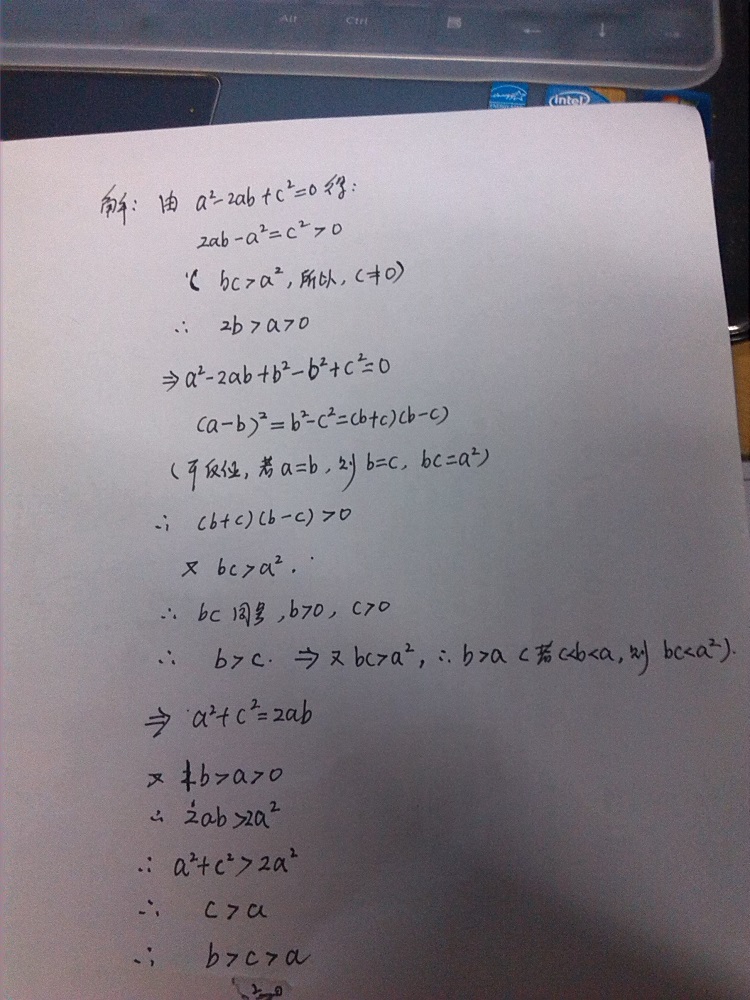 Alt Ctrl
intel
解: 由 a²-2ab+c²=0 得:
2ab-a²=c²>0
( bc>a², 所以, c≠0)
∴ 2b>a>0
⇒ a²-2ab+b²-b²+c²=0
(a-b)²=b²-c²=(b+c)(b-c)
(可反证, 若 a=b, 则 b=c, bc=a²)
∴ (b+c)(b-c)>0
又 bc>a².
∴ bc 同号, b>0, c>0
∴ b>c. ⇒ 又 bc>a², ∴ b>a (若 c<b<a, 则 bc<a²).
⇒ a²+c²=2ab
又 b>a>0
∴ 2ab>2a²
∴ a²+c²>2a²
∴ c>a
∴ b>c>a